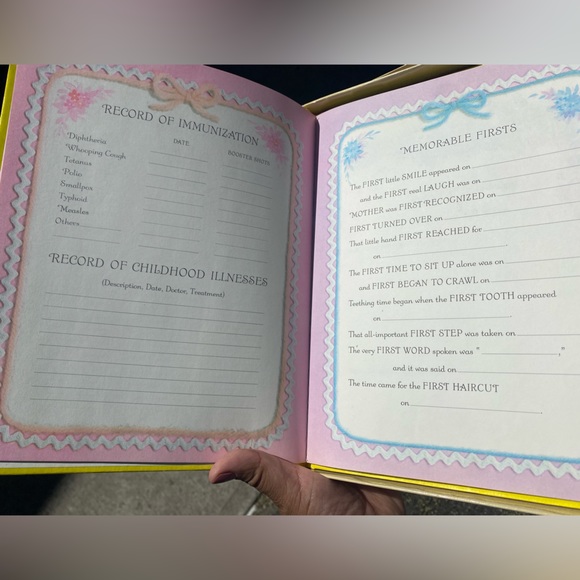 RECORD OF IMMUNIZATION
DATE
BOOSTER SHOTS
Diphtheria
Whooping Cough
Tetanus
Polio
Smallpox
Typhoid
Measles
Others
RECORD OF CHILDHOOD ILLNESSES
(Description, Date, Doctor, Treatment)
MEMORABLE FIRSTS
The FIRST little SMILE appeared on
and the FIRST real LAUGH was on
MOTHER was FIRST RECOGNIZED on
FIRST TURNED OVER on
That little hand FIRST REACHED for
on
The FIRST TIME TO SIT UP alone was on
and FIRST BEGAN TO CRAWL on
Teething time began when the FIRST TOOTH appeared
on
That all-important FIRST STEP was taken on
The very FIRST WORD spoken was " ,"
and it was said on
The time came for the FIRST HAIRCUT
on .